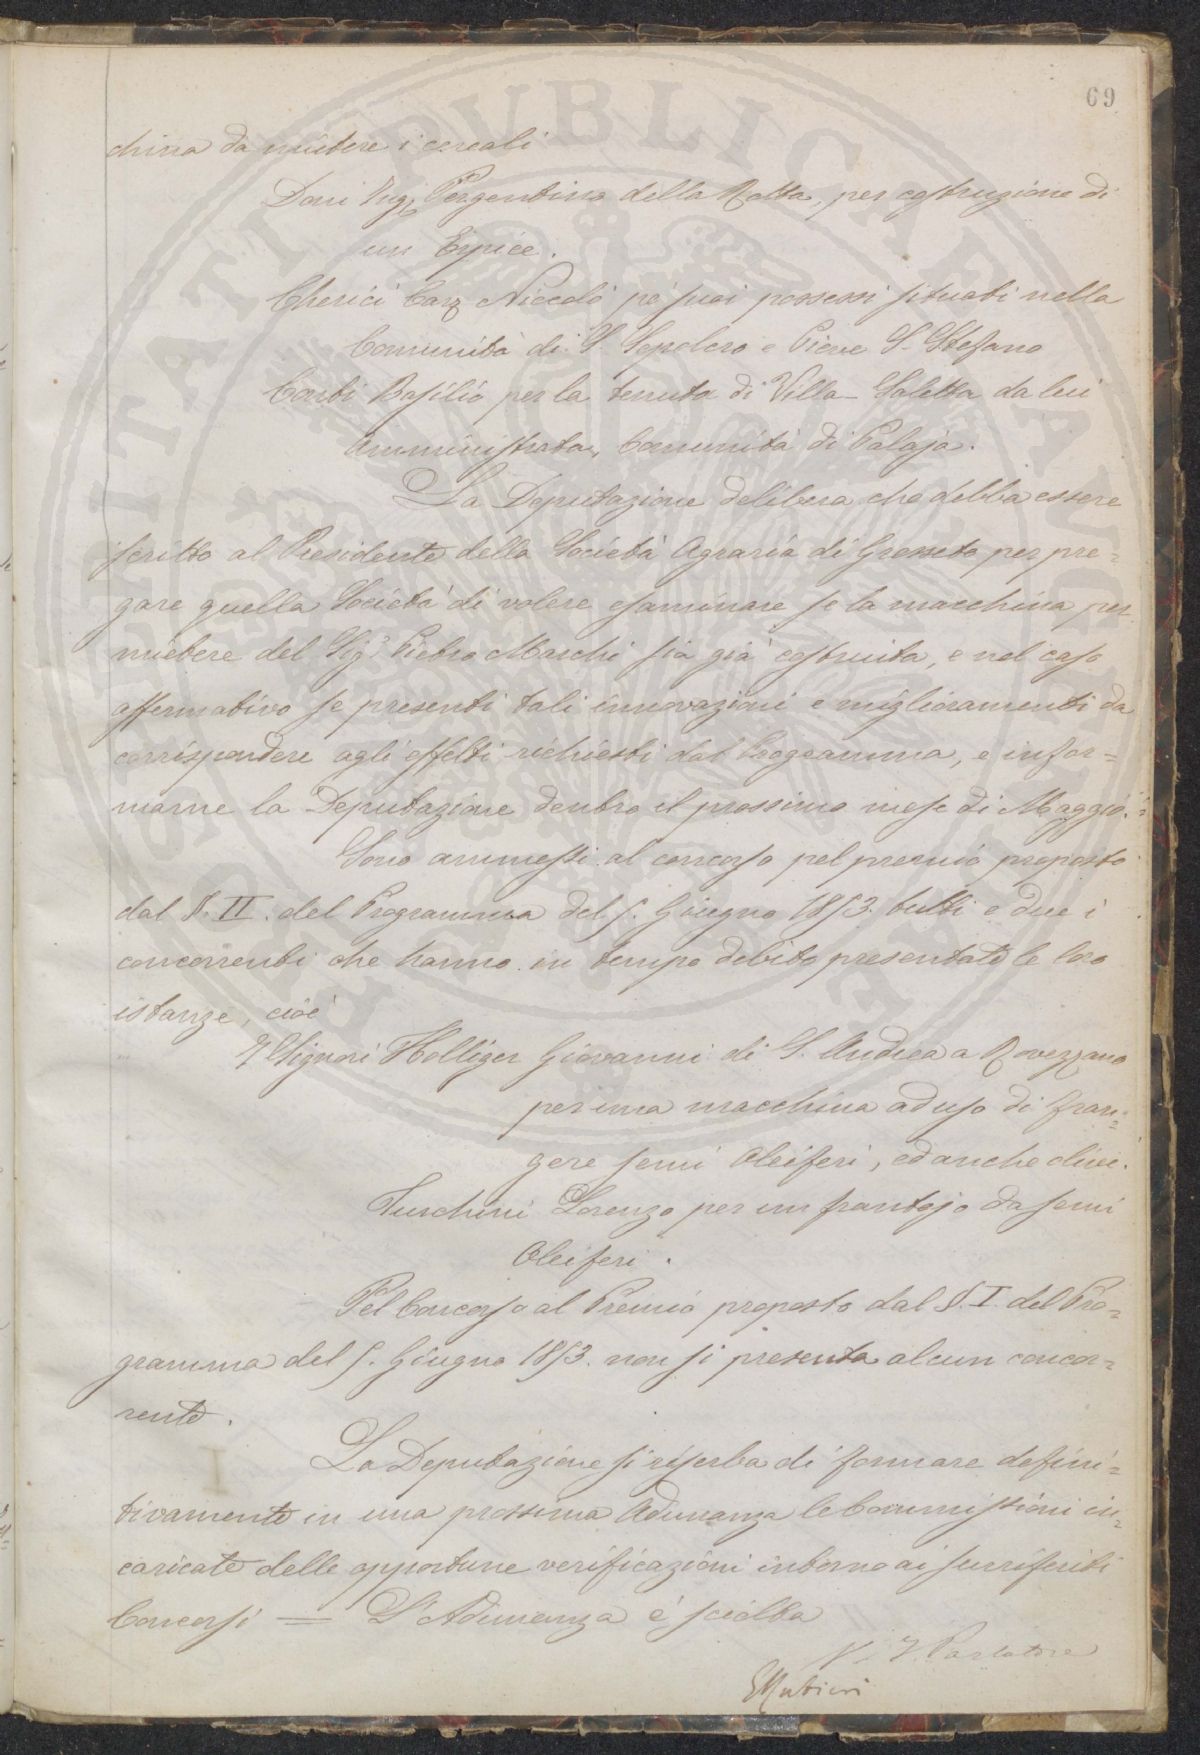 69
china da mietere i cereali
Dani Luigi Pergentino della Rotta, per costruzione di
un Erpice.
Cherici Cav. Niccolò pe' suoi possessi situati nella
Comunità di S. Sepolcro e Pieve S. Stefano
Conti Basilio per la tenuta di Villa-Saletta da lui
amministrata, Comunità di Palaja.
La Deputazione delibera che debba essere
scritto al Presidente della Società Agraria di Grosseto per pre=
gare quella Società di volere esaminare se la macchina per
mietere del Sigr. Pietro Marchi sia già costruita, e nel caso
affermativo se presenti tali innovazioni e miglioramenti da
corrispondere agli effetti richiesti dal Programma, e infor=
marne la Deputazione dentro il prossimo mese di Maggio.
Sono ammessi al concorso pel premio proposto
dal §. II. del Programma del 5. Giugno 1853. tutti e due i
concorrenti che hanno in tempo debito presentate le loro
istanze, cioè
I Signori Holliger Giovanni di S. Andrea a Rovezzano
per una macchina ad uso di fran=
gere semi Oleiferi, ed anche olive.
Turchini Lorenzo per un frantojo da semi
Oleiferi.
Pel Concorso al Premio proposto dal §. I. del Pro=
gramma del 5. Giugno 1853. non si presenta alcun concor=
rente.
La Deputazione si riserba di formare defini=
tivamente in una prossima Adunanza le Commissioni in=
caricate delle opportune verificazioni intorno ai surriferiti
Concorsi = L'Adunanza è sciolta
V. F. Parlatore
E Rubieri